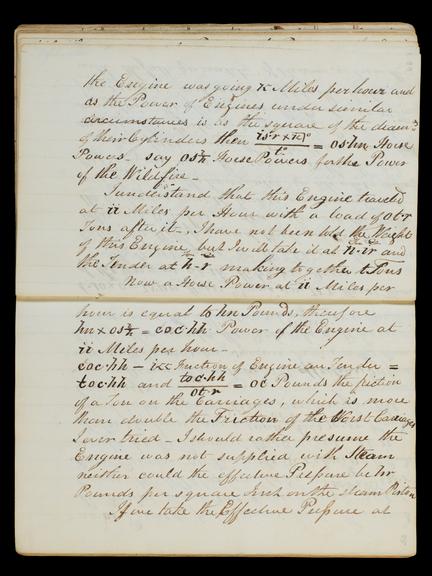 the Engine was going Miles per hour and
as the Power of Engines under similar
circumstances is as the square of the diam^rs
of their Cylinders then = Horse
Powers - say Horse Powers for the Power
of the Wildfire -
I understand that this Engine travel'd
at ii Miles per Hour with a load of ot·r
Tons after it - I have not been told the Weight
of this Engine, but I will take it at and
the Tender at h·r making together Tons
Now a Horse Power at ii Miles per
hour is equal to hn Pounds, therefore
hn × = coc·hh Power of the Engine at
ii Miles per hour -
coc·hh - Friction of Engine an Tender =
toc·hh and toc·hh/ot·r = oc Pounds the friction
of a Ton on the Carriages, which is more
than double the Friction of the Worst Carriages
I ever tried - I should rather presume the
Engine was not supplied with Steam
neither could the effective Pressure be hr
Pounds per square Inch on the steam Piston
If we take the Effective Pressure at